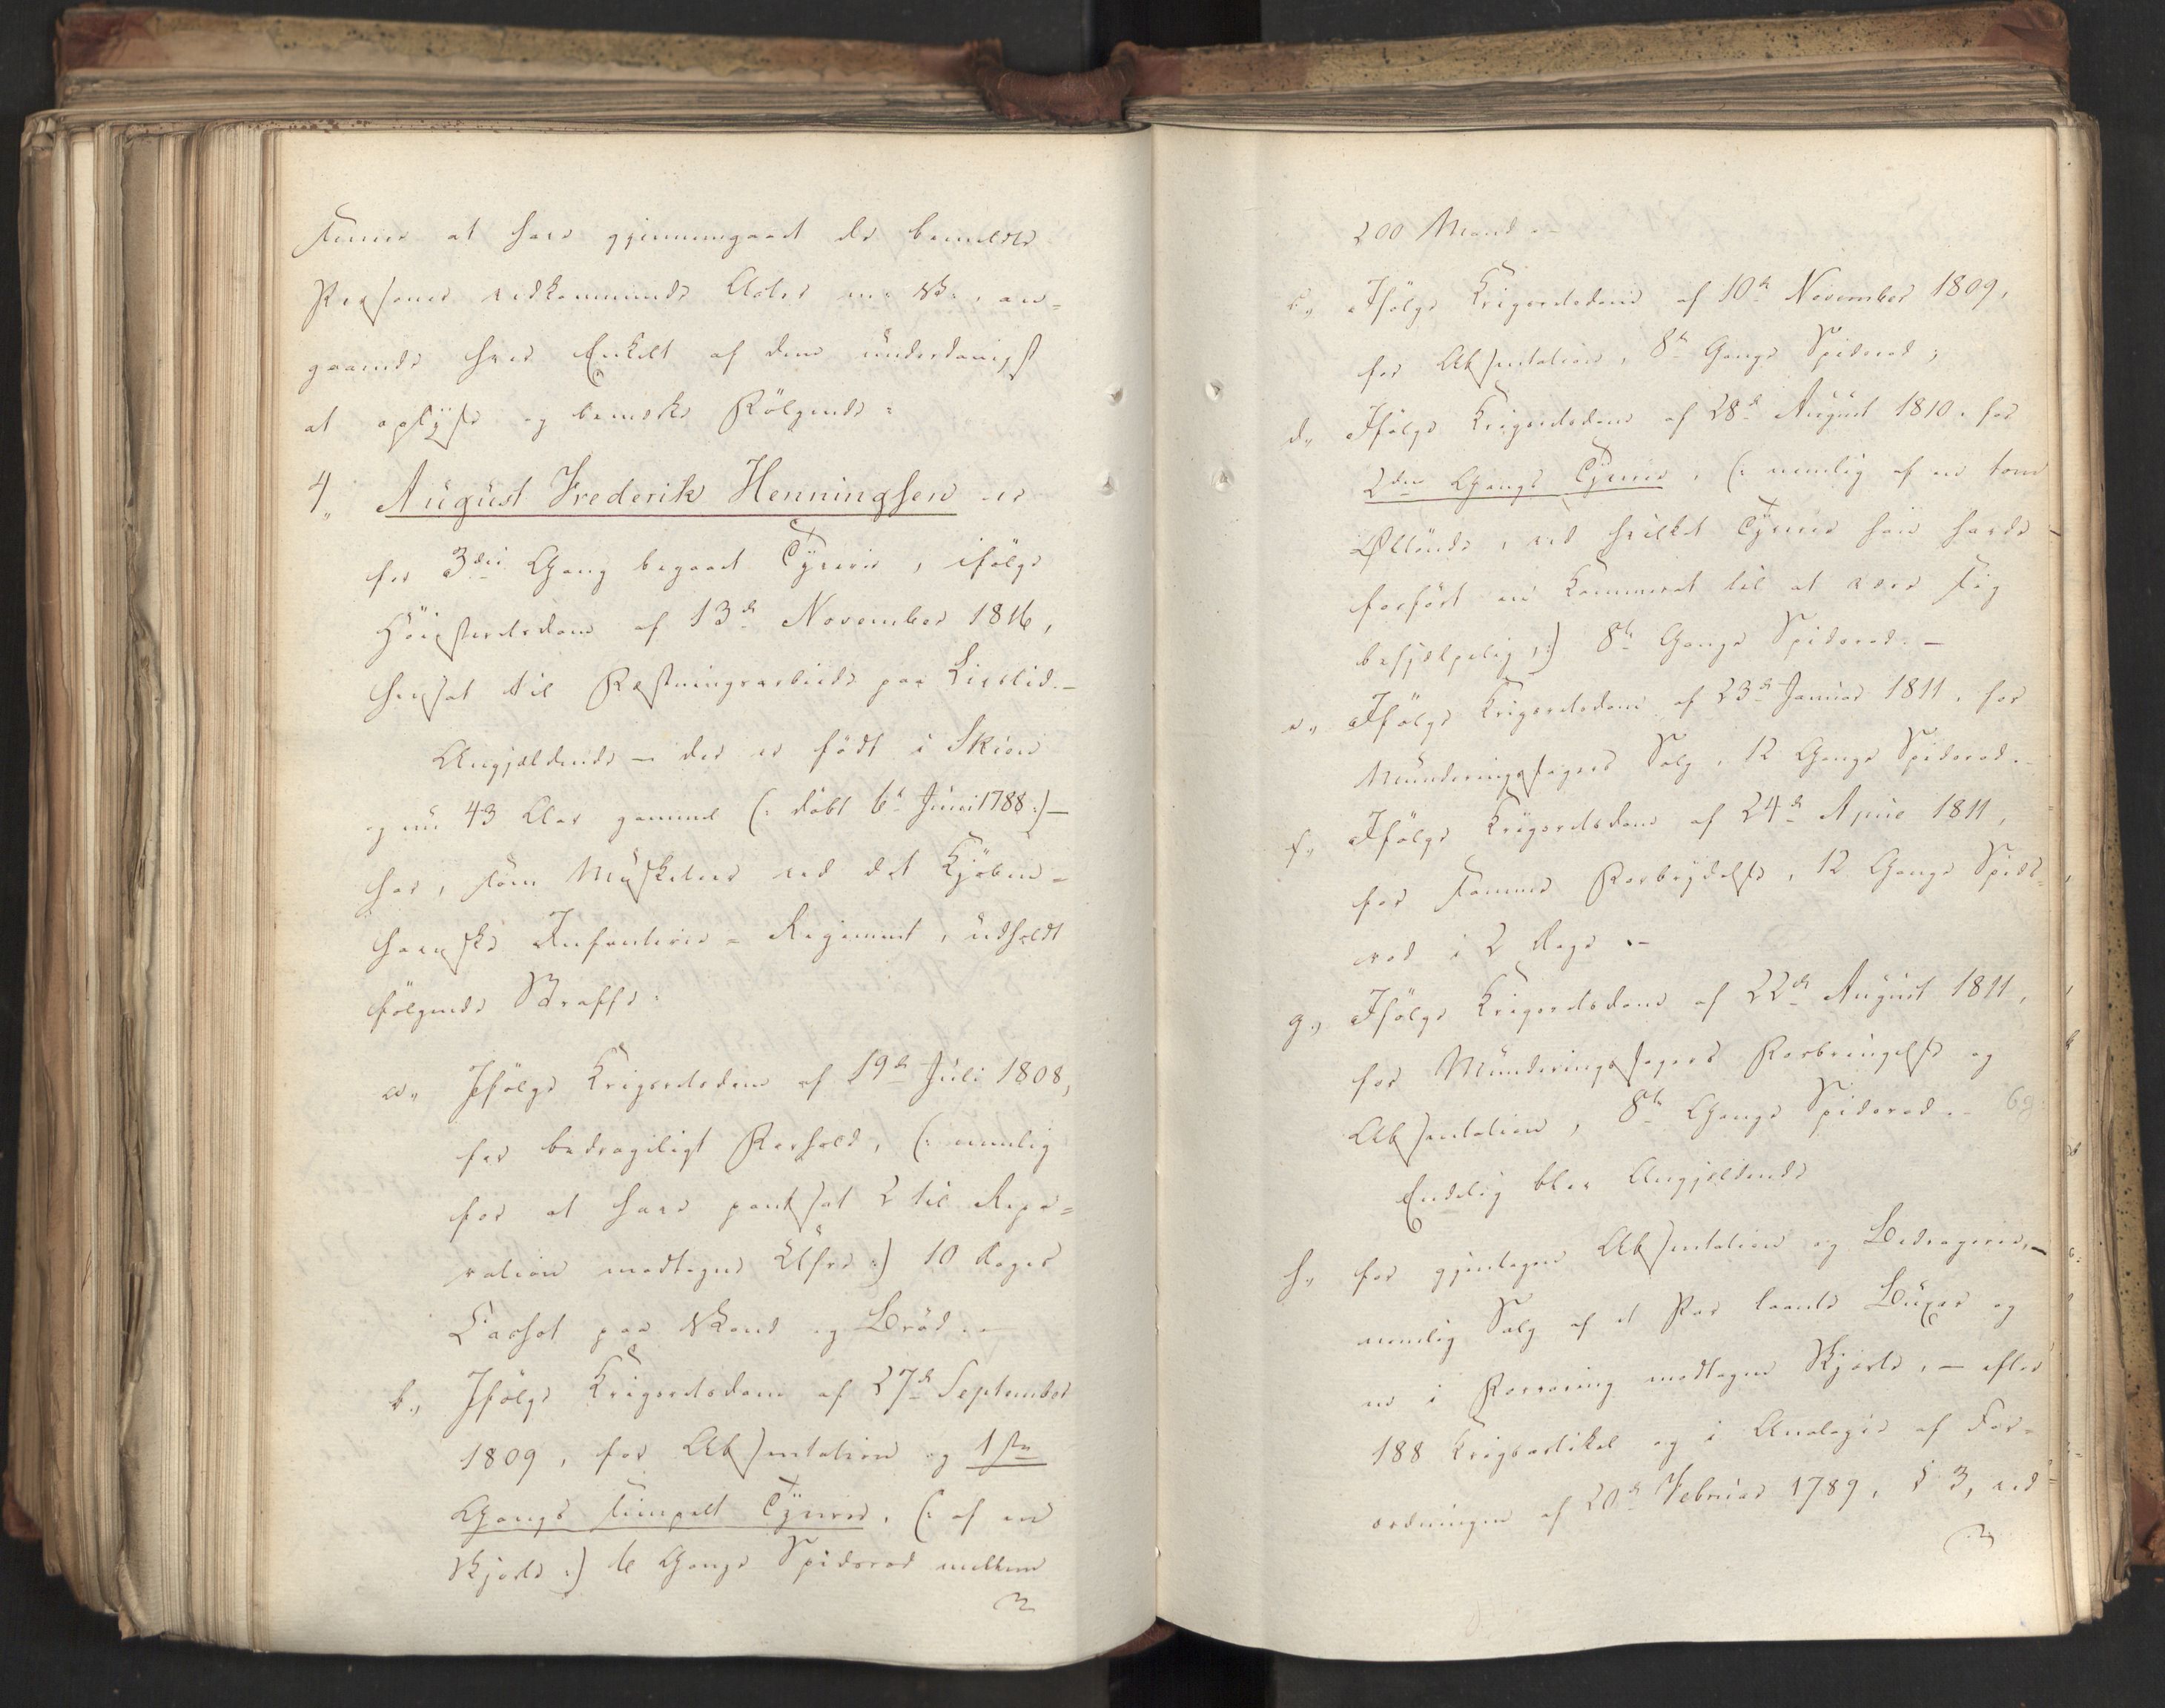 Finner at have gjennemgaaet de benævnte
Personer vedkommende Acter m: V: , an-
gaaende hver Enkelt af dem underdanigst
at oplyse og bemærke Følgende:
4, August Frederik Henningsen er
for 3die Gang begaaet Tyverie, ifølge
Høiesteretsdom af 13de November 1816,
hensat til Fæstningsarbeide paa Livstid. –
Angjældende – der er født i Skien
og nu 43 Aar gammel (: døbt 6te Juni 1788 :) –
har, som Musketeer ved det Kjøben-
havnske Infanterie-Regiment, udholdt
følgende Straffe:
a, Ifølge Krigsretsdom af 19de Juli 1808,
for bedrageligt Forhold, (: nemlig
for at have pantsat 2 til Repa-
ration modtagne Uhre :) 10 Dages
Carhol paa Vand og Brød. –
b, Ifølge Krigsretsdom af 27de September
1809, for Absentation og 1ste
Gangs simpelt Tyverie, (: af en
Skjorte :) 6 Gange Spidsrod mellem
200 Mand. –
c, Ifølge Krigsretsdom af 10de November 1809,
for Absentation, 8te Gange Spidsrod;
d, Ifølge Krigsretsdom af 28de August 1810, for
2den Gangs Tyverie, (: nemlig af en tom
Øltønde, ved hvilket Tyverie han havde
forført en Kammerat til at være sig
behjælpelig, :) 8te Gange Spidsrod. –
e, Ifølge Krigsretsdom af 23de Januar 1811, for
Munderingssagers Salg, 12 Gange Spidsrod. –
f, Ifølge Krigsretsdom af 24de April 1811,
for samme Forbrydelse, 12 Gange Spids-
rod i 2 Dage. –
g, Ifølge Krigsretsdom af 22de August 1811,
for Munderingssagers Forbringelse og
Absentation, 8te Gange Spidsrod. –
Endelig blev Angjældende
h, for gjentagen Absentation og Bedragerie, –
nemlig Salg af et Par laante Buxer og
en i Forvaring modtagen Skjorte, – efter
188 Krigsartikel og i Analogie af For-
ordningen af 20de Februar 1789, § 3, ved